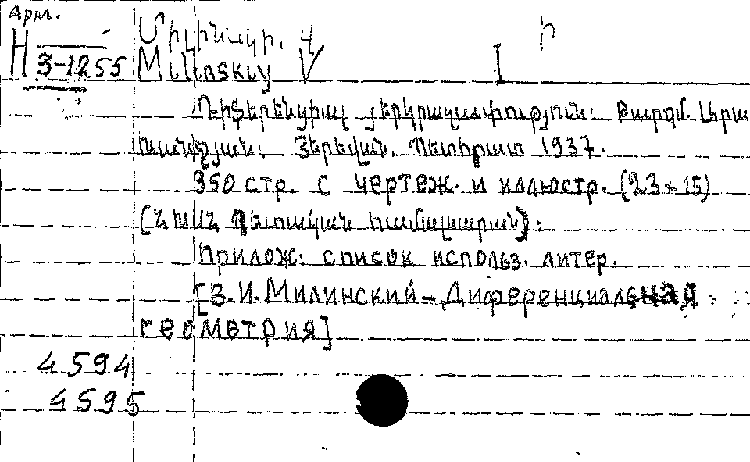 Арм.
H 3-1255
Միլինսկի, Վ
Milinskiy V I
Դիֆերենցիալ յերկրաչափություն: Թարգմ. Աբրա
համյան. Յերեվան, Պետհրատ 1937.
350 стр. с чертеж. и иллюстр. (23×15)
(ՀԽՍՀ Պետական համալսարան).
Прилож: список использ. литер.
[В. И. Милинский - Диференциальная
геометрия]
4594
4595